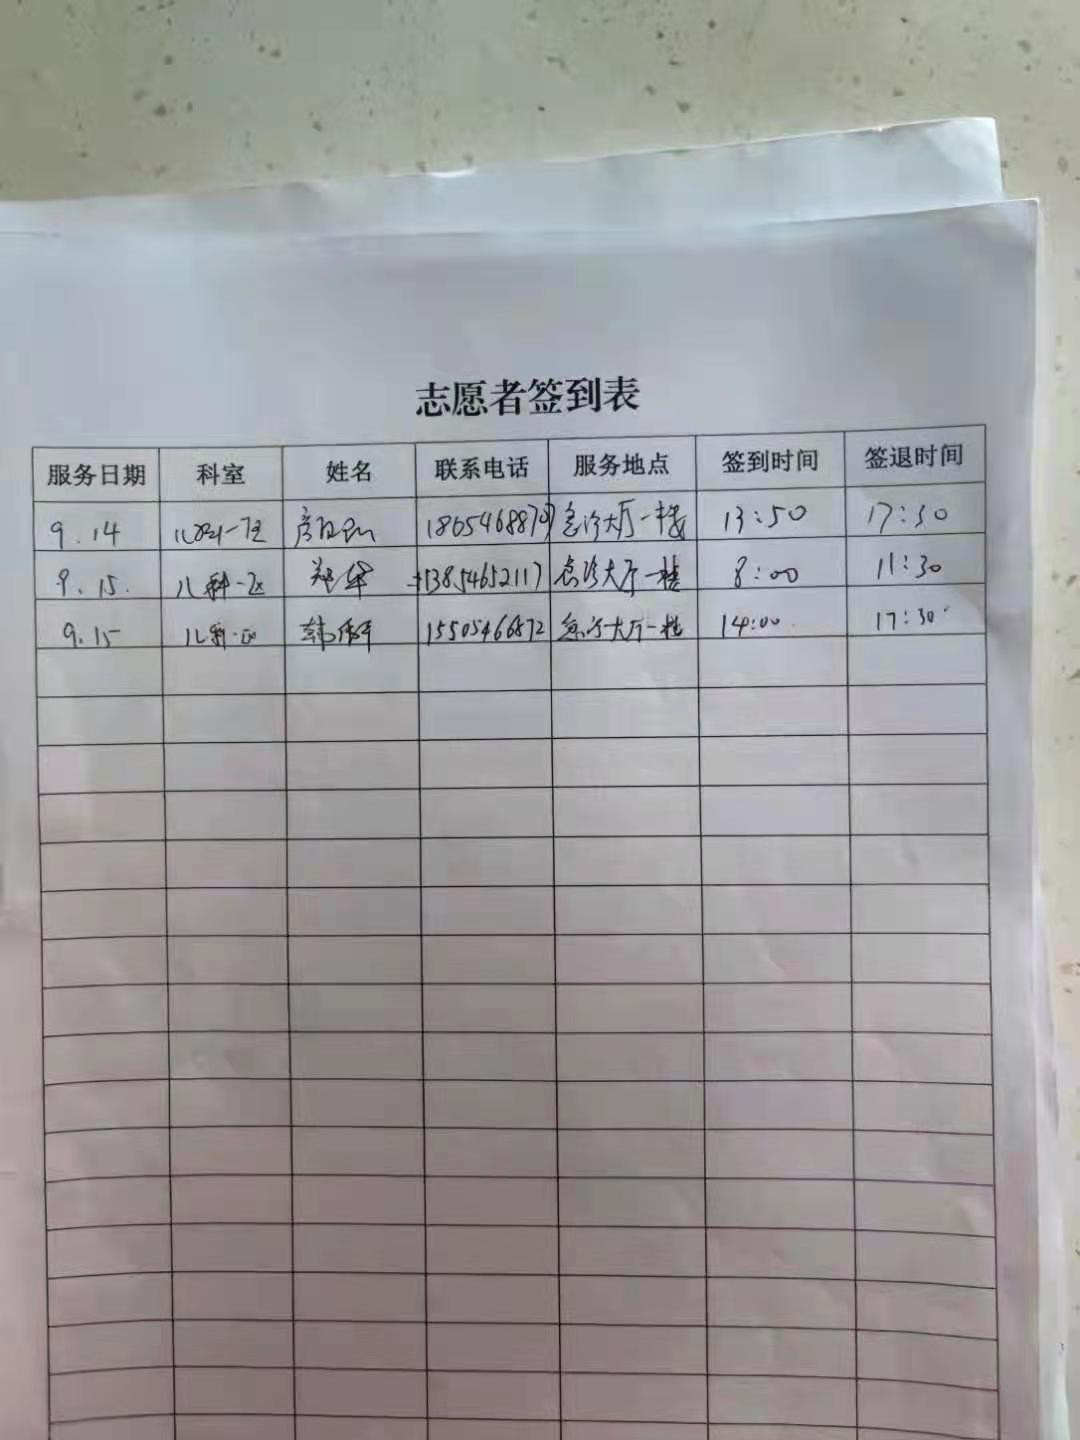 志愿者签到表
服务日期 科室 姓名 联系电话 服务地点 签到时间 签退时间
9.14 儿科一区 急诊大厅一楼 13:50 17:30
9.15. 儿科一区 13854652117 急诊大厅一楼 8:00 11:30
9.15 儿科一区 15505466572 急诊大厅一楼 14:00 17:30